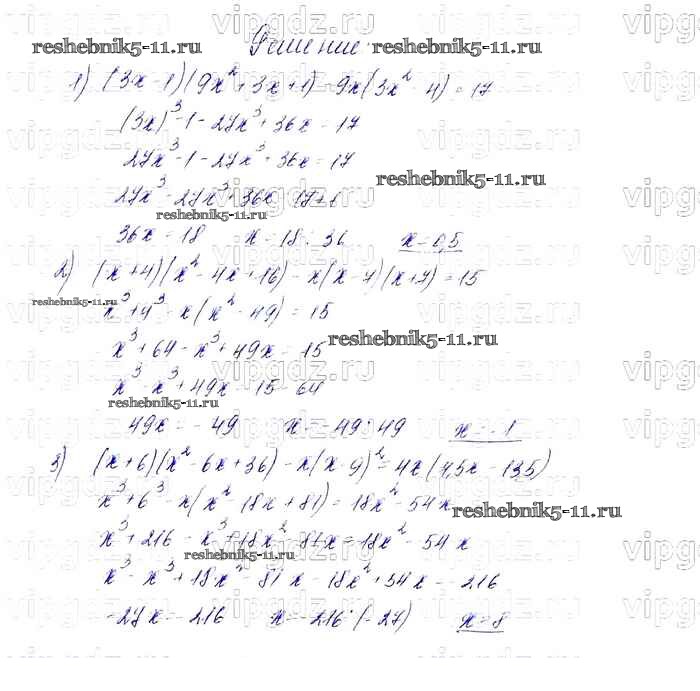 reshebnik5-11.ru Решение:
1) (3x-1)(9x²+3x+1)-9x(3x²-4)=17
(3x)³-1-27x³+36x=17
27x³-1-27x³+36x=17
reshebnik5-11.ru
27x³-27x³+36x=17+1
reshebnik5-11.ru
36x=18 x=18:36 x=0,5
2) (x+4)(x²-4x+16)-x(x-7)(x+7)=15
reshebnik5-11.ru
x³+4³-x(x²-49)=15
reshebnik5-11.ru
x³+64-x³+49x=15
x³-x³+49x=15-64
reshebnik5-11.ru
49x=-49 x=-49:49 x=-1
3) (x+6)(x²-6x+36)-x(x-9)²=4x(4,5x-13,5)
x³+6³-x(x²-18x+81)=18x²-54x
reshebnik5-11.ru
x³+216-x³+18x²-81x=18x²-54x
reshebnik5-11.ru
x³-x³+18x²-81x-18x²+54x=-216
-27x=-216 x=-216:(-27) x=8
vipgdz.ru